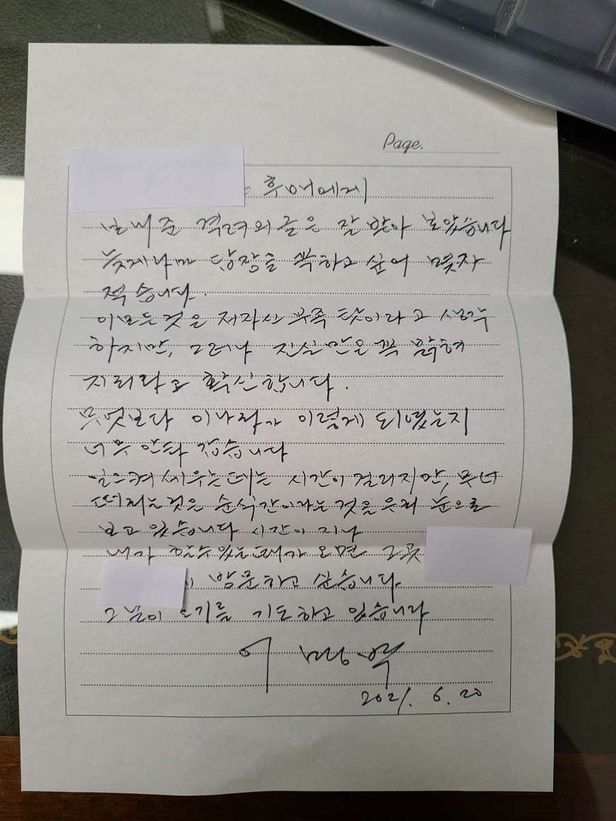 Page.
후매에게
보내준 격려의 글은 잘 받아 보았습니다
늦게나마 답장을 꼭 하고 싶어 몇자
적습니다.
이모든것은 저자신 부족 탓이라고 생각
하지만, 그러나 진실만은 꼭 밝혀
지리라고 확신합니다.
무엇보다 이나라가 이렇게 되었는지
너무 안타깝습니다
일으켜 세우는데는 시간이 걸리지만, 무너
떠지는것은 순식간이라는 것을 우리 눈으로
보고 있습니다 시간이 지나
내가 할수있는때가 오면 그곳
방문하고 싶습니다
그날이 오기를 기도하고 있습니다
이명박
2021. 6. 20